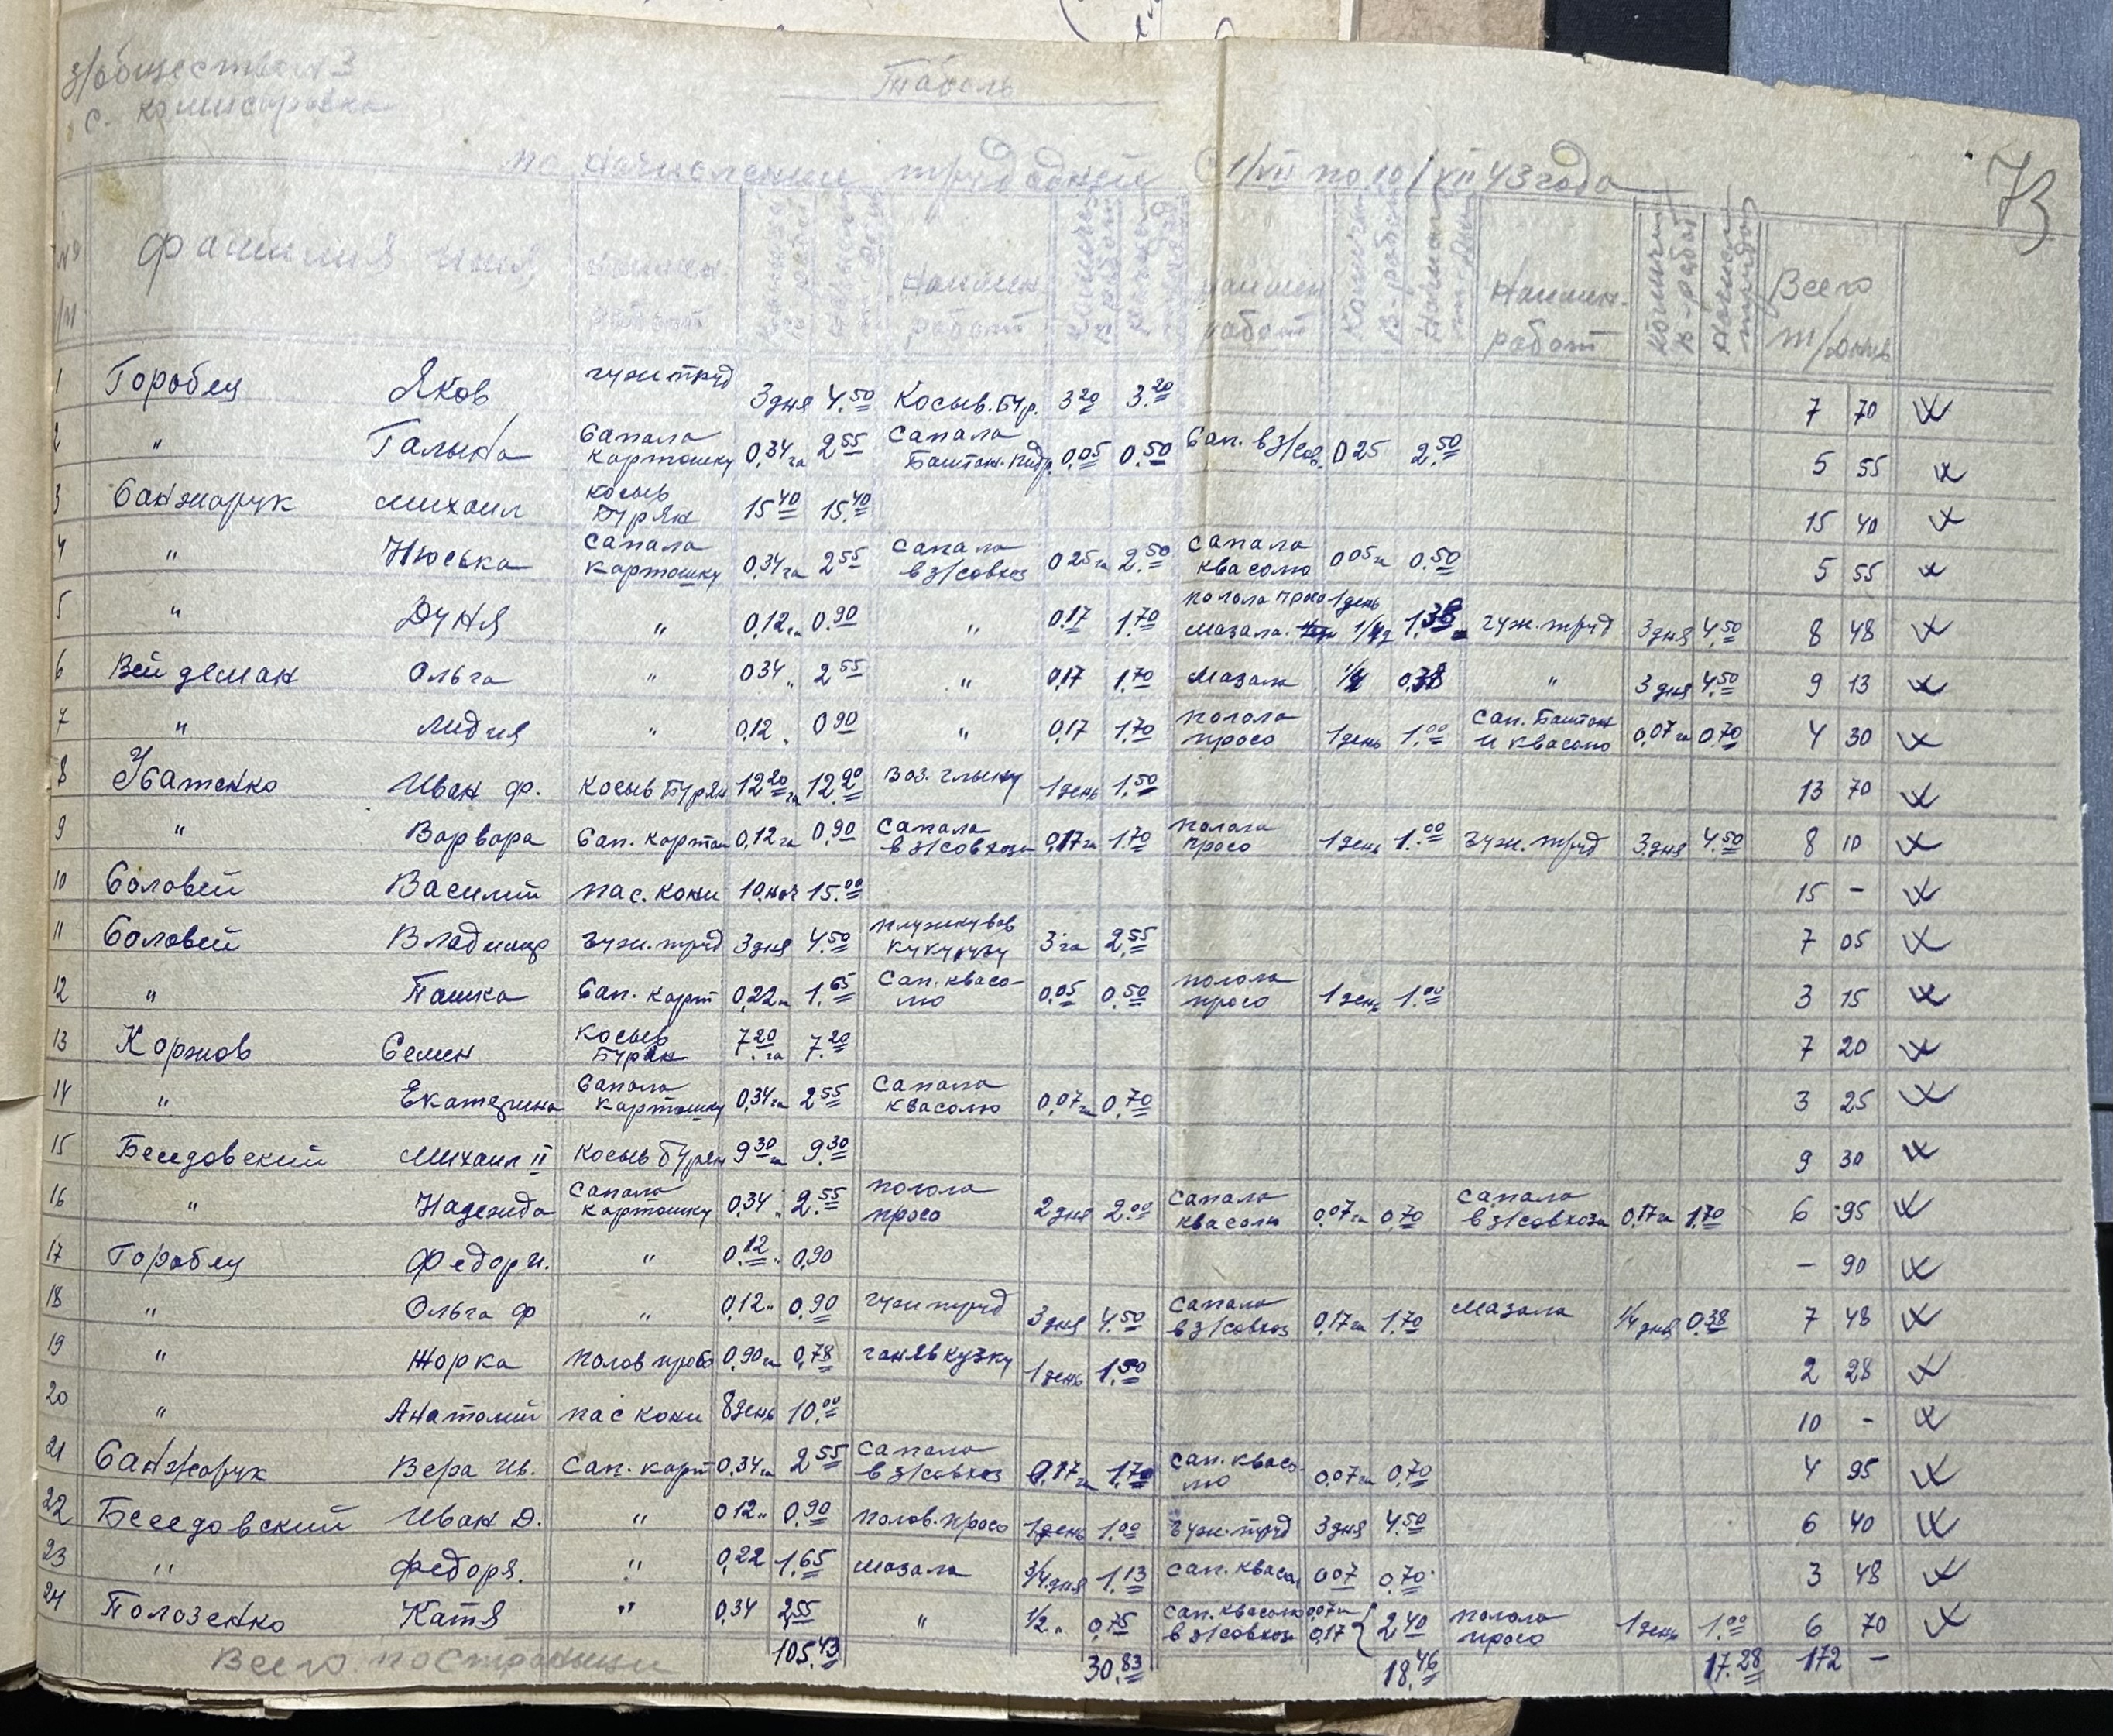 з/общество №3
с. комисаровка
Табель
по начислении трудодней С 1/VII по 10/VII 43 года
73
№ п/п Фамилия имя наимен. работ Количес. в-работ Начислен. т-дни Наимен. работ Количес. в-работ Начислен. трудод наимен работ Количес. В-работ Начислен. т-дни Наимен. работ Количес. в-работ Начислен. трудод Всего т/дней
1 Горобец Яков гужтруд 3 дня 4.50 Косыв. бур. 3 20 3.20 7 70
2 " Галына Сапала картошку 0,34 га 2 55 Сапала Баштан. 0,05 0.50 Сап. в з/сов. 0 25 2.50 5 55
3 Санжарук Михаил косыв бурян 15 40 15.40 15 40
4 " Нюська Сапала картошку 0,34 га 2 55 Сапала в з/совхоз 0 25 га 2.50 Сапала квасолю 0 05 га 0.50 5 55
5 " Дуня " 0,12 га 0.90 " 0.17 1.70 полола просо 1 день мазала. 1/4 д 1.38 гуж. труд 3 дня 4.50 8 48
6 Вейдеман Ольга " 0 34 " 2 55 " 0,17 1.70 Мазала 1/4 0,38 " 3 дня 4.50 9 13
7 " Лидия " 0,12 " 0 90 " 0,17 1.70 полола просо 1 день 1.00 Сап. Баштан и квасолю 0,07 га 0,70 4 30
8 Убатенко Иван Ф. Косыв Бурян 12 20 га 12.20 Воз. глыну 1 день 1.50 13 70
9 " Варвара Сап. картош 0,12 га 0,90 Сапала в з/совхозе 0,17 га 1.70 полола просо 1 день 1.00 гуж. труд 3 дня 4.50 8 10
10 Соловей Василий пас. кони 10 ноч 15.00 15 –
11 Соловей Владимир гуж. труд 3 дня 4.50 плужкував кукурузу 3 га 2.55 7 05
12 " Пашка Сап. карт 0,22 га 1.65 Сап. квасо-лю 0,05 0,50 полола просо 1 день 1.00 3 15
13 Коржов Семен Косыв Бурян 7 20 га 7.20 7 20
14 " Екатерина Сапала картошку 0,34 га 2 55 Сапала квасолю 0,07 га 0,70 3 25
15 Беседовский Михаил II Косыв бурян 9 30 га 9.30 9 30
16 " Надежда Сапала картошку 0,34 " 2.55 полола просо 2 дня 2.00 Сапала квасолю 0,07 га 0,70 Сапала в з/совхозе 0,17 га 1,70 6 95
17 Горобец Федор И. " 0.12 " 0,90 – 90
18 " Ольга Ф " 0,12 " 0,90 гужтруд 3 дня 4.50 Сапала в з/совхоз 0,17 га 1.70 Мазала 1/4 дня 0.38 7 48
19 " Жорка полов просо 0,90 га 0,78 ганяв кузку 1 день 1.50 2 28
20 " Анатолий пас кони 8 день 10.00 10 –
21 Санжарук Вера Ив. Сап. карт 0,34 га 2 55 Сапала в з/совхоз 0,17 га 1.70 Сап. квасо-лю 0,07 га 0,70 4 95
22 Беседовский Иван Д. " 0 12 " 0,90 полов. просо 1 день 1.00 гуж. труд 3 дня 4.50 6 40
23 " Федора. " 0,22 1,65 Мазала 3/4 дня 1.13 Сап. квасол 0 07 0,70 3 48
24 Полозенко Катя " 0,34 2,55 " 1/2 " 0,75 Сап. квасолю 0,07 га в з/совхоз 0,17 2 40 полола просо 1 день 1.00 6 70
Всего по странице 105.43 30.83 18.46 17.28 172 –